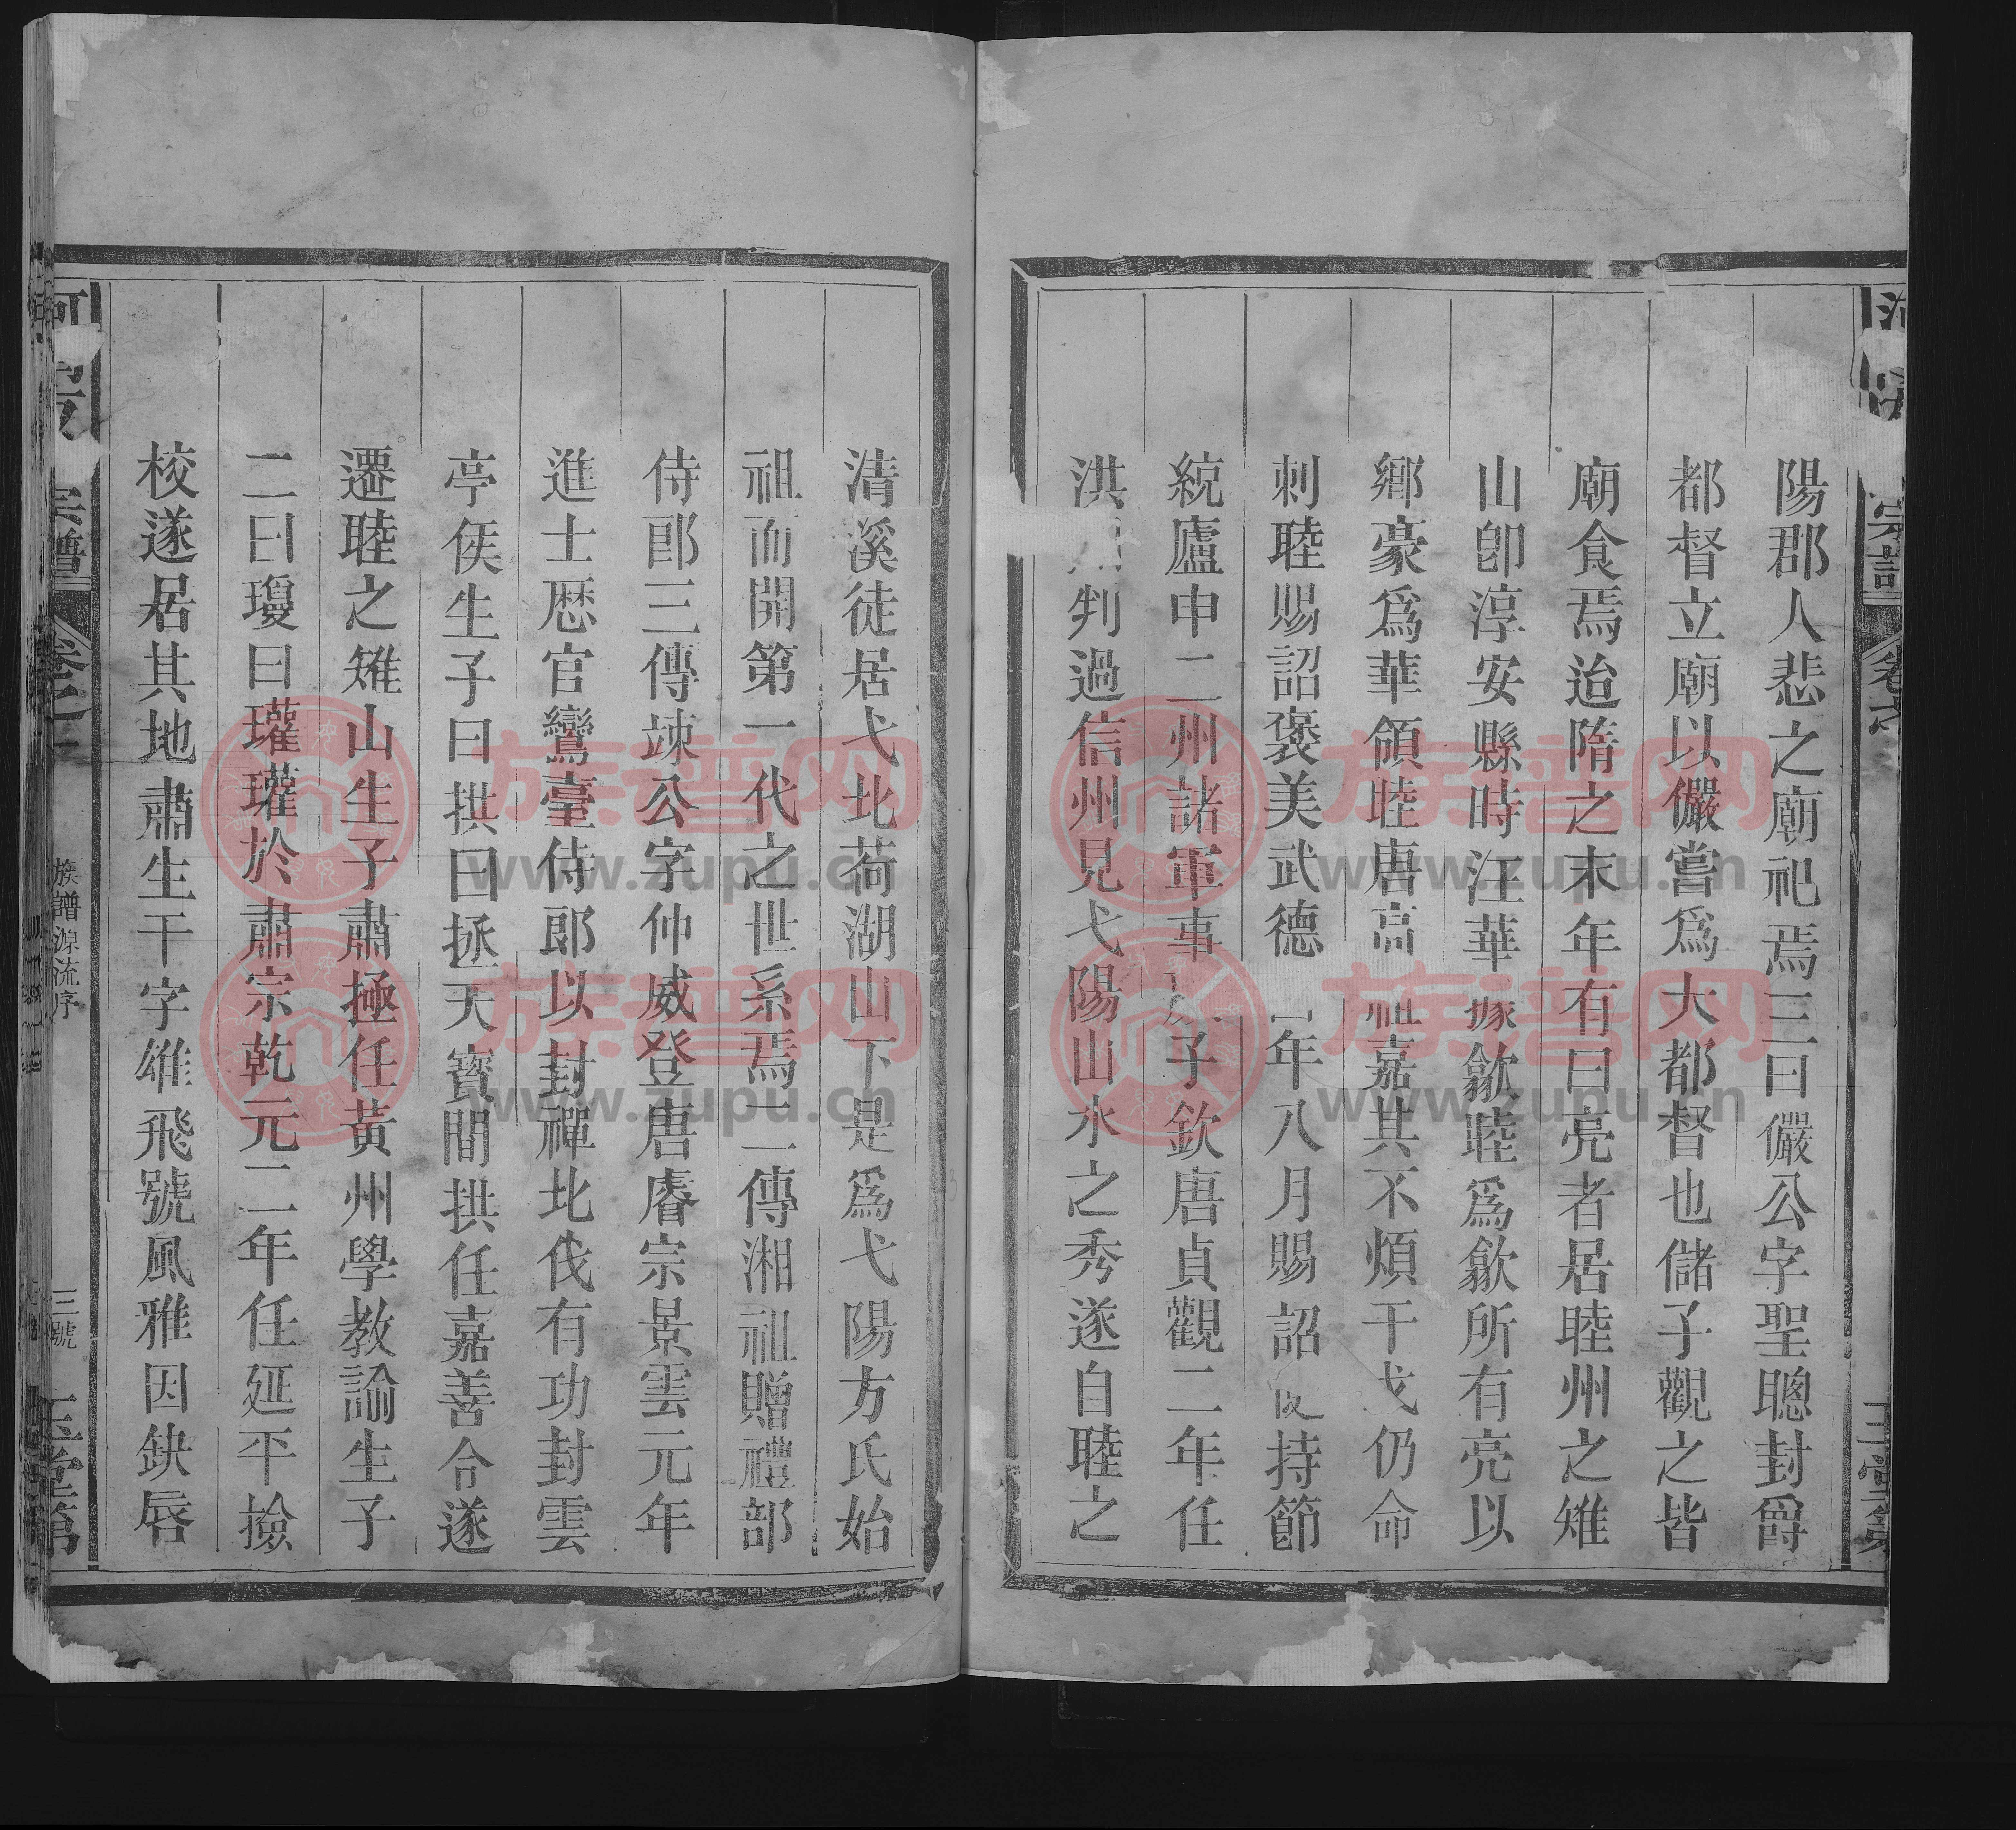 宗譜
陽郡人悲之廟祀焉三曰儼公字聖聰封爵
都督立廟以儼嘗爲大都督也儲子觀之皆
廟食焉迨隋之末年有曰亮者居睦州之雉
山卽淳安縣時汪華據歙睦爲歙所有亮以
鄉豪爲華領睦唐高祖嘉其不煩干戈仍命
刺睦賜詔褒美武德 年八月賜詔 持節
統廬申二州諸軍事 子欽唐貞觀二年任
洪州判過信州見弋陽山水之秀遂自睦之
清溪徒居弋北荷湖山下是爲弋陽方氏始
祖而開第一代之世系焉二傳湘祖贈禮部
侍郎三傳竦公字仲威登唐睿宗景雲元年
進士歷官鸞臺侍郎以封禪北伐有功封雲
亭侯生子曰拱曰拯天寶間拱任嘉善令遂
遷睦之雉山生子肅極任黃州學教諭生子
二曰瓊曰瓘瓘於肅宗乾元二年任延平撿
校遂居其地肅生干字雄飛號風雅因缺唇
河
宗譜
族譜源流序
三號
玉堂第
族谱网
www.zupu.cn
族谱网
www.zupu.cn
族谱网
www.zupu.cn
族谱网
www.zupu.cn